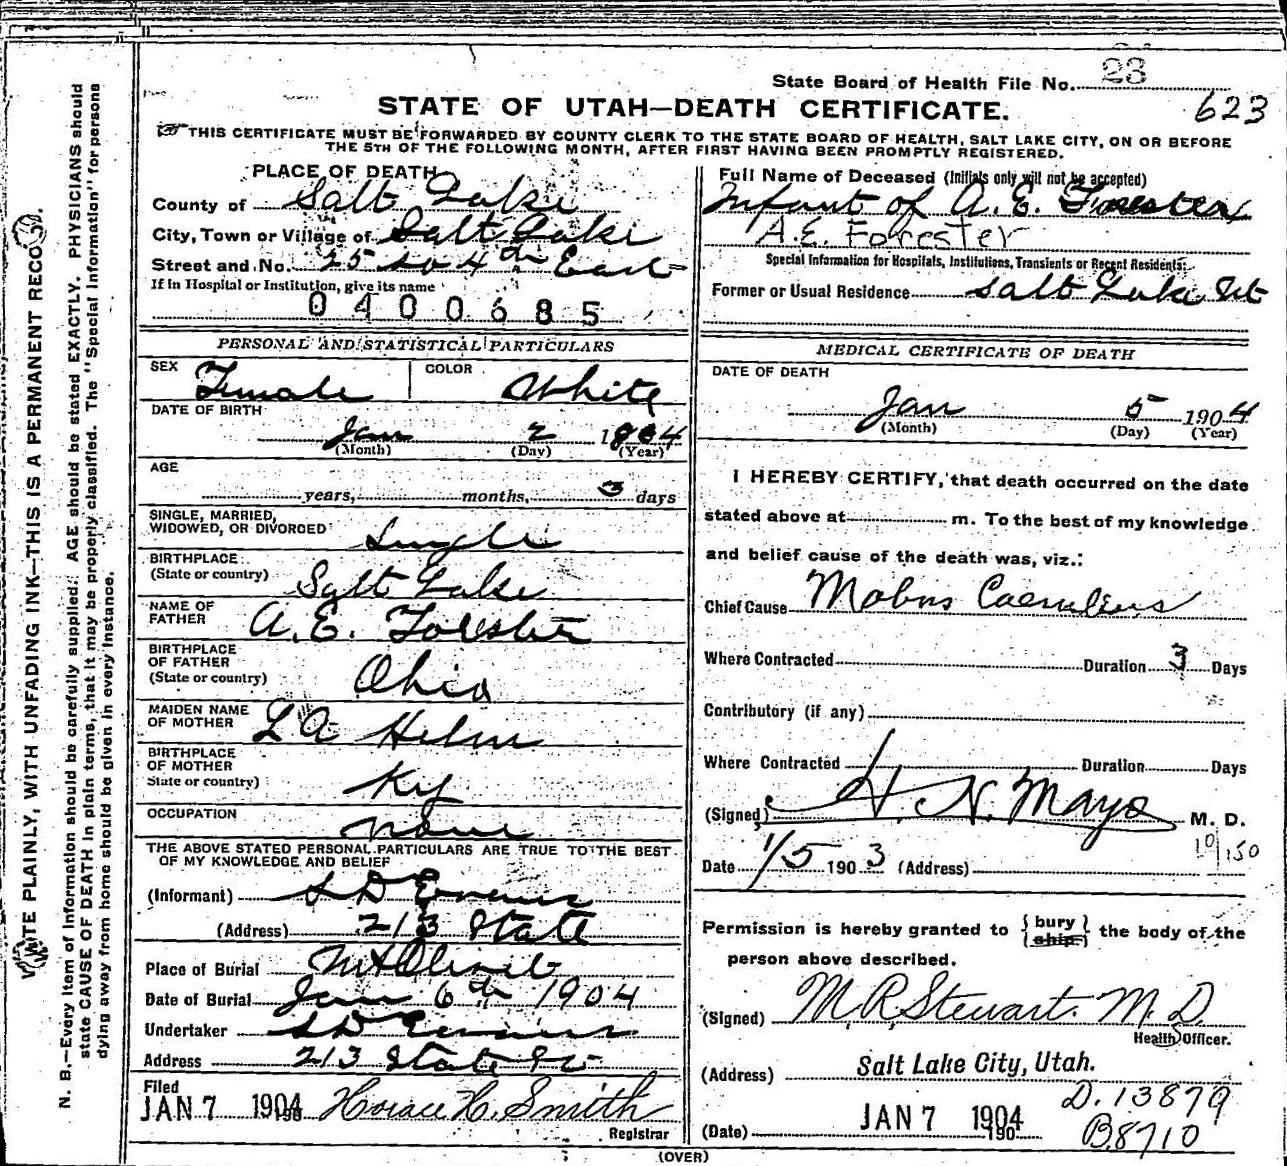 State Board of Health File No. 23
623
STATE OF UTAH—DEATH CERTIFICATE.
THIS CERTIFICATE MUST BE FORWARDED BY COUNTY CLERK TO THE STATE BOARD OF HEALTH, SALT LAKE CITY, ON OR BEFORE
THE 5TH OF THE FOLLOWING MONTH, AFTER FIRST HAVING BEEN PROMPTLY REGISTERED.
WRITE PLAINLY, WITH UNFADING INK—THIS IS A PERMANENT RECORD.
N. B.—Every item of information should be carefully supplied. AGE should be stated EXACTLY. PHYSICIANS should
state CAUSE OF DEATH in plain terms, that it may be properly classified. The "Special Information" for persons
dying away from home should be given in every instance.
PLACE OF DEATH
County of Salt Lake
City, Town or Village of Salt Lake
Street and No. 25 So 4th East
If in Hospital or Institution, give its name
0400685
PERSONAL AND STATISTICAL PARTICULARS
SEX Female COLOR White
DATE OF BIRTH
Jan 2 1904
(Month) (Day) (Year)
AGE
years, months, 3 days
SINGLE, MARRIED,
WIDOWED, OR DIVORCED Single
BIRTHPLACE
(State or country) Salt Lake
NAME OF
FATHER A. E. Forester
BIRTHPLACE
OF FATHER
(State or country) Ohio
MAIDEN NAME
OF MOTHER L A Helm
BIRTHPLACE
OF MOTHER
State or country) Ky
OCCUPATION
none
THE ABOVE STATED PERSONAL PARTICULARS ARE TRUE TO THE BEST
OF MY KNOWLEDGE AND BELIEF
(Informant) S D Evans
(Address) 213 State
Place of Burial Mt Olivet
Date of Burial Jan 6th 1904
Undertaker S D Evans
Address 213 State St
Filed
JAN 7 1904 190 Horace H. Smith
Registrar
Full Name of Deceased (Initials only will not be accepted)
Infant of A. E. Forester
A.E. Forester
Special Information for Hospitals, Institutions, Transients or Recent Residents:
Former or Usual Residence Salt Lake Ut
MEDICAL CERTIFICATE OF DEATH
DATE OF DEATH
Jan 5 1904
(Month) (Day) (Year)
I HEREBY CERTIFY, that death occurred on the date
stated above at m. To the best of my knowledge
and belief cause of the death was, viz.:
Chief Cause Mobus Caeruleus
Where Contracted Duration 3 Days
Contributory (if any)
Where Contracted Duration Days
(Signed) H. N. Mayo M. D.
10/150
Date 1/5 1903 (Address)
Permission is hereby granted to { bury / ship } the body of the
person above described.
(Signed) M. R. Stewart. M. D.
Health Officer.
(Address) Salt Lake City, Utah.
D. 13879
(Date) JAN 7 1904 190
B.8710
(OVER)